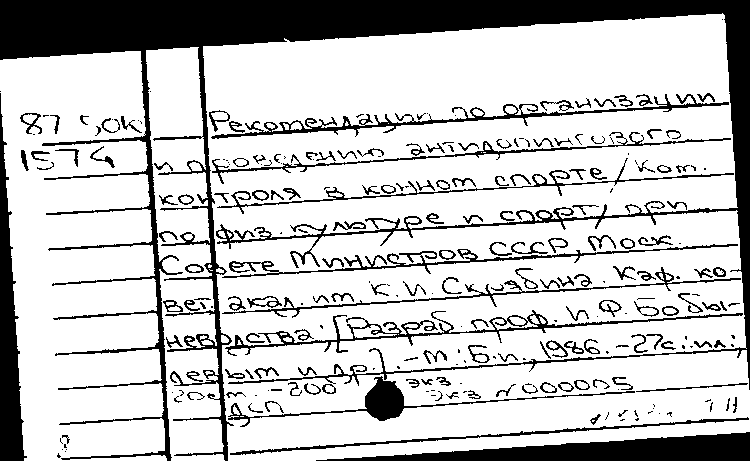 87 5,0к Рекомендации по организации
1574 и проведению антидопингового
контроля в конном спорте / Ком.
по физ. культуре и спорту при
Совете Министров СССР, Моск.
вет. акад. им. К.И. Скрябина. Каф. ко-
неводства; [Разраб. проф. И.Ф. Бобы-
левым и др.]. -М.: Б.и., 1986. -27с.: ил.;
20см. -200 экз.
ДСП Экз N000005